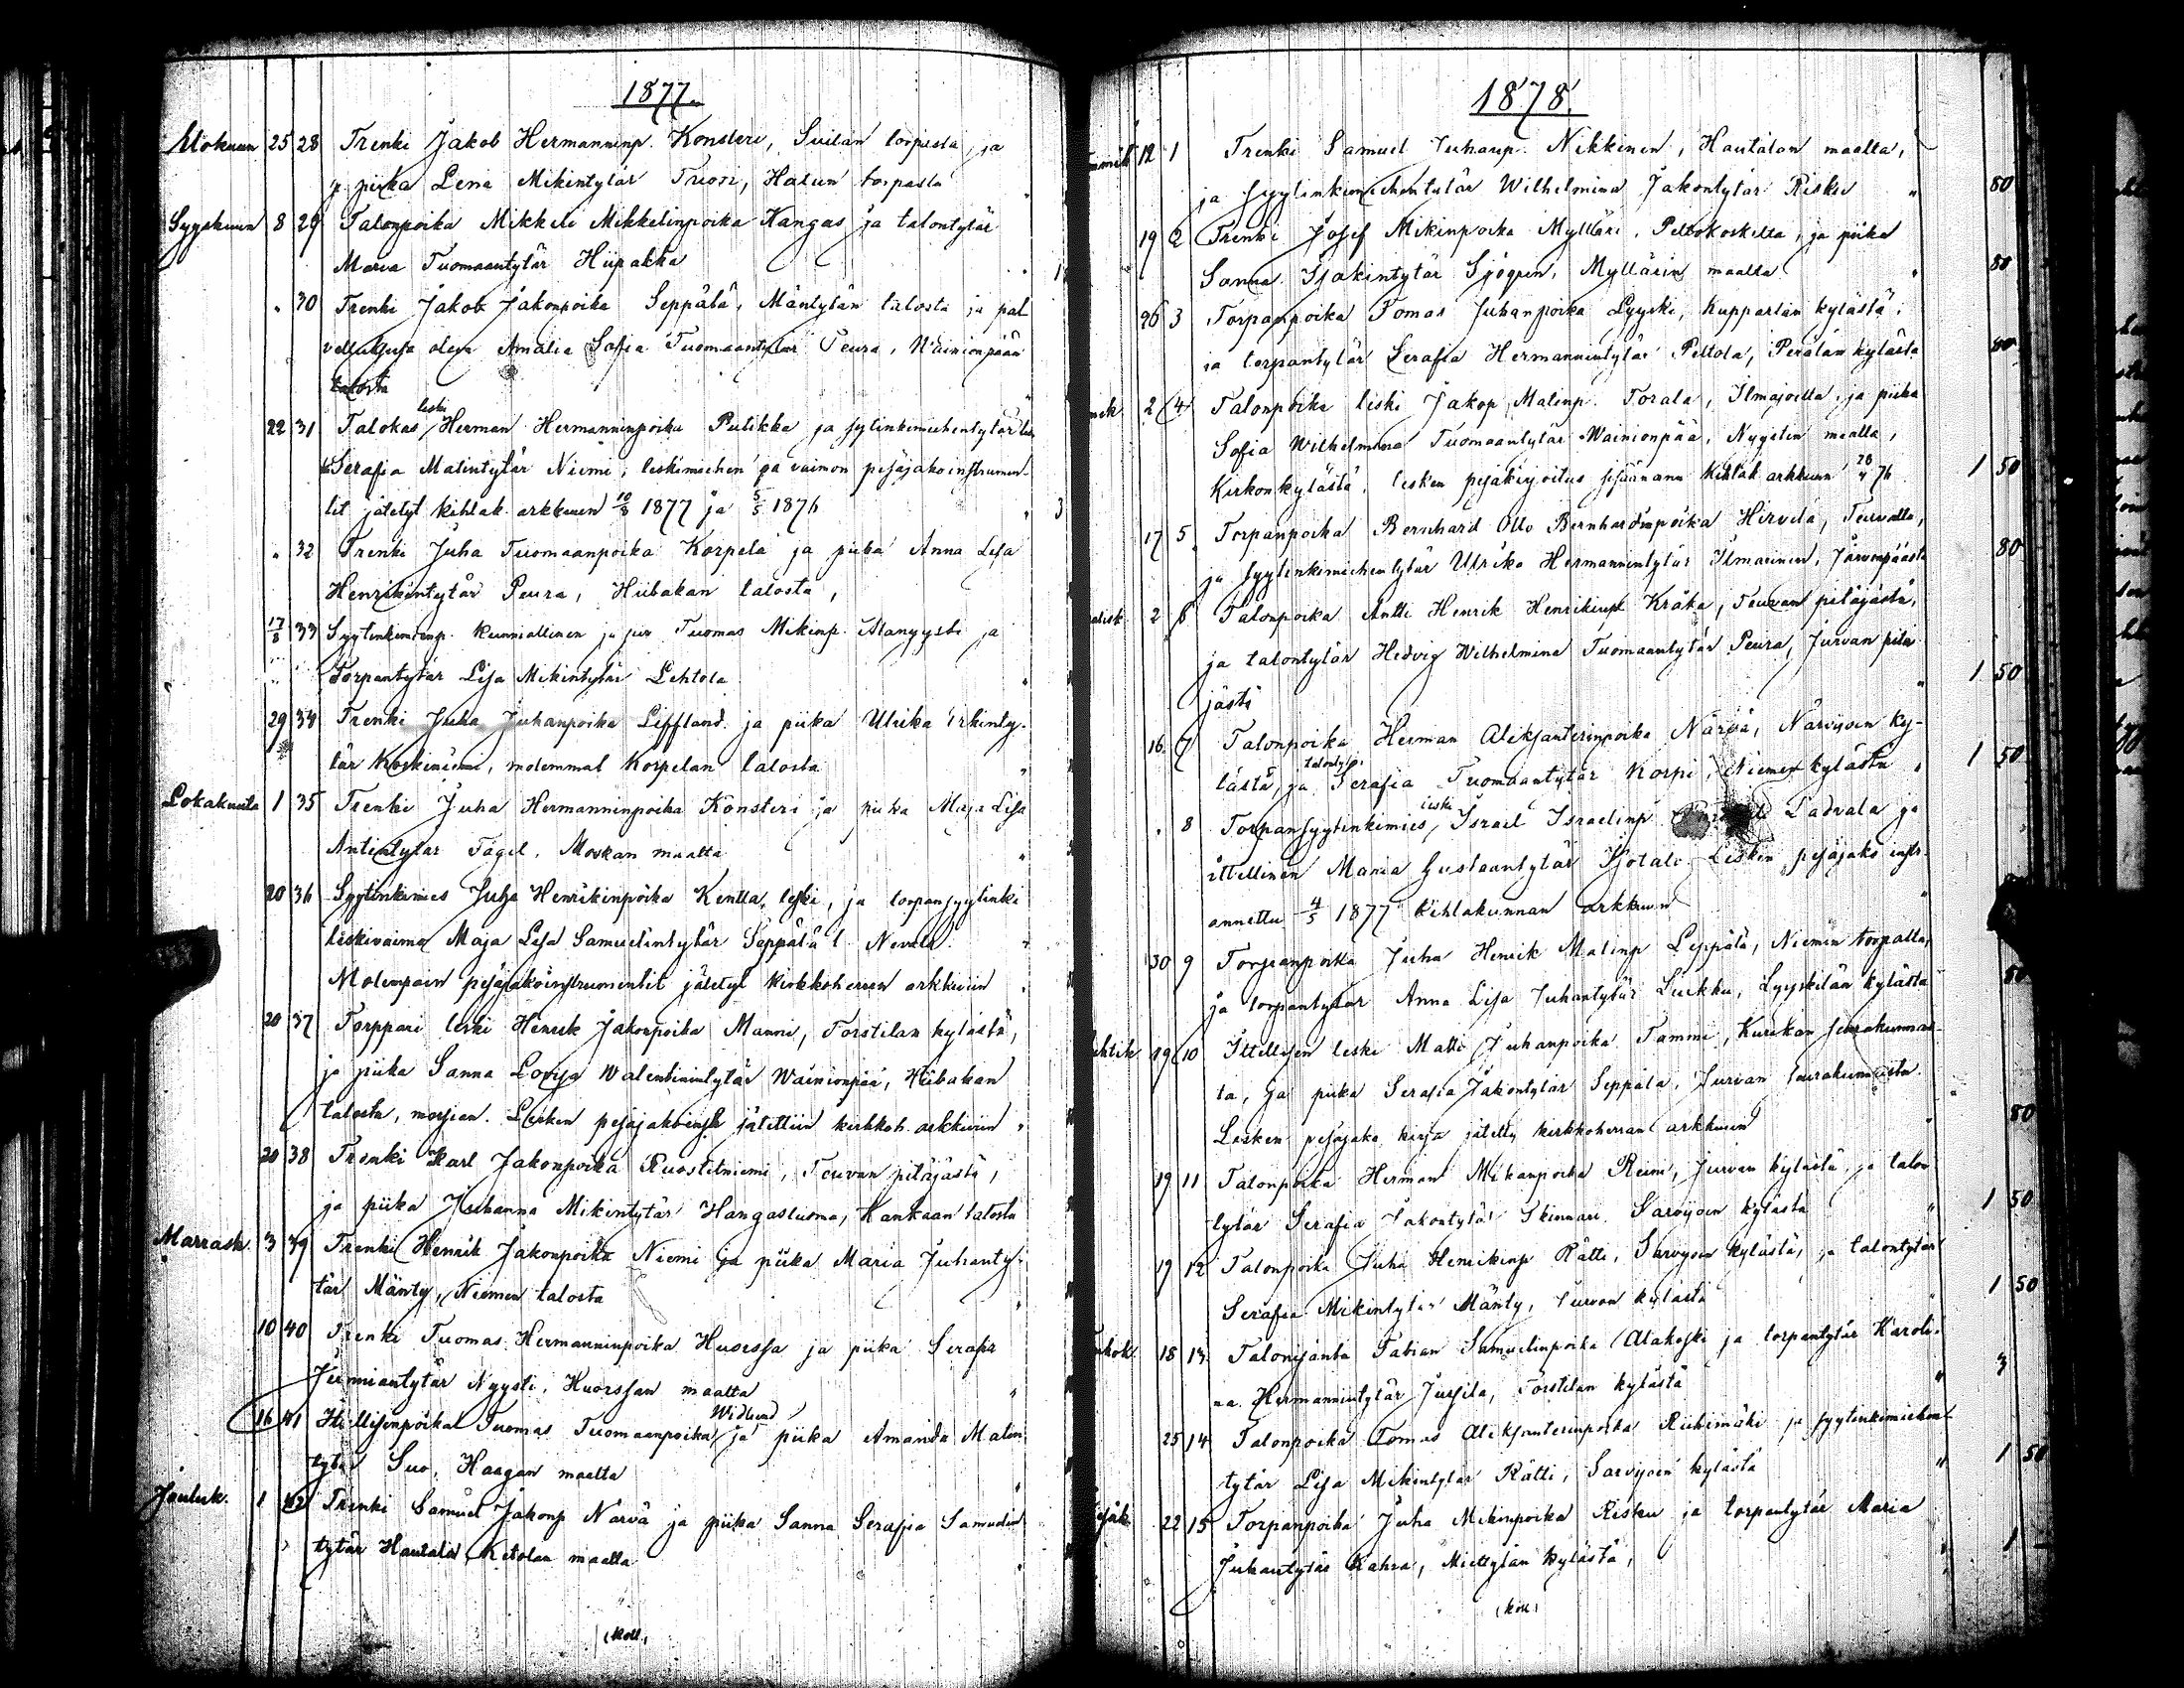 1877.
Elokuun 25 28 Trenki Jakob Hermanninp. Konsteri, Suilan torpista, ja
piika Lena Mikintytär Tuori, Halun torpasta "
Syyskuun 8 29 Talonpoika Mikkeli Mikkelinpoika Kangas ja talontytär
Marva Tuomaantytär Hiipakka
" 30 Trenki Jakob Jakonpoika Seppälä, Mäntylän talosta ja pal
velluksesa oleva Amalia Sofia Tuomaantytär Peura, Wainionpään
talosta "
22 31 Talokas leski Herman Hermanninpoika Pulikka ja sytinkimiehentytär
Serafia Matintytär Niemi, leskimiehen ja vaimon pesäjakoinstrumen-
tit jätetyt kihlak. arkkiuun 10/8 1877 ja 5/5 1876 " 3
" 32 Trenki Juha Tuomaanpoika Korpela ja piika Anna Lisa
Henrikintytär Peura, Hiibakan talosta,
17/8 33 Syytinkimienp. kunniallinen ja Tuomas Mikinp. Alanyysti ja
Torpantytär Lisa Mikintytär Lehtola "
29 34 Trenki Juha Juhanpoika Liffland ja piika Ulrika Erkinty-
tär Koskiniemi, molemmat Korpelan talosta "
Lokakuuta 1 35 Trenki Juha Hermanninpoika Konsteri ja piika Maja Lisa
Antintytär Fagel, Moskan maalta "
20 36 Syytinkimies Juha Henrikinpoika Kentta, leski, ja torpansyytinki
leskivaimo Maja Lisa Samuelintytär Seppälä l. Nevala "
Molempain pesäjakoinstrumentit jätetyt kirkkoherran arkkiviin
20 37 Torppari leski Henrik Jakonpoika Manni, Forstilan kylästä,
ja piika Sanna Lovisa Walentinintytär Wainionpää, Hiibakan
talosta, morsian. Lesken pesäjakoinstr jätettiin kirkkoh. arkkiviin "
20 38 Trenki Karl Jakonpoika Ruostetniemi, Teuvan pitäjästä,
ja piika Juhanna Mikintytär Hangasluoma, Kankaan talosta
Marrask. 3 39 Trenki Henrik Jakonpoika Niemi ja piika Maria Juhanty-
tär Mänty, Niemen talosta "
10 40 Trenki Tuomas Hermanninpoika Huorssa ja piika Serafia
Jeremiantytär Nyysti, Huorssan maalta "
16 41 Itellisenpoika Tuomas Tuomaanpoika Widlund, ja piika Amanda Matin
tytär Suo, Haagan maalta "
Jouluk. 1 42 Trenki Samuel Jakonp Närvä ja piika Sanna Serafia Samuelin
tytär Hautala, Ketolan maalta "
(koll)
1878.
12 1 Trenki Samuel Juhanp. Nikkinen, Hautalan maalta,
ja syytinkimiehentytär Wilhelmina Jakontytär Risku " 80
19 2 Trenki Josef Mikinpoika Mylläri, Peltokoskilta, ja piika
Sanna Isakintytär Sjögren, Myllärin maalta " 80
26 3 Torpanpoika Tomas Juhanpoika Lyyski, Kuppartan kylästä,
ja torpantytär Serafia Hermannintytär Peltola, Perälän kylästä 80
2 4 Talonpoika leski Jakop Matinp. Torala, Ilmajoella, ja piika
Sofia Wilhelmina Tuomaantytär Wainionpää, Nygstin maalta,
Kirkonkylästä. lesken pesäkirjoitus sisäänannu kihlak arkkiuun 28/4 76 1 50
17 5 Torpanpoika Bernhard Otto Bernhardinpoika Hirvelä, Teuvalta,
ja syytinkimiehentytär Ulrika Hermannintytär Ilmarinen, Järvenpäästä 80
2 6 Talonpoika Antti Henrik Henrikinp. Kråka, Teuvan pitäjästä,
ja talontytär Hedvig Wilhelmina Tuomaantytär Peura, Jurvan pitä-
jästä " 1 50
16 7 Talonpoika Herman Aleksanterinpoika Närvä, Närvijoen ky-
lästä, ja talontytär Serafia Tuomaantytär Korpi, Niemen kylästä " 1 50
" 8 Torpansyytinkimies, leski Israel Israelinp Ladvala ja
ittellinen Maria Gustaantytär Isotalo. Lesken pesäjako instr.
annettu 4/5 1877 kihlakunnan arkkiuun "
30 9 Torpanpoika Juha Henrik Matinp Leppälä, Niemin torpalta,
ja torpantytär Anna Lisa Juhantytär Luikku, Lyyskilän kylästä 80
19 10 Ittellisen leski Matti Juhanpoika Tammi, Kurikan seurakunnas-
ta, ja piika Serafia Jakontytär Seppälä, Jurvan seurakunnasta.
Lesken pesäjako kirja jätetty kirkkoherran arkkiuun " 80
19 11 Talonpoika Herman Mikanpoika Reini, Jurvan kylästä, ja talon
tytär Serafia Jakontytär Skinnari, Sarvijoen kylästä " 1 50
19 12 Talonpoika Juha Henrikinp Rätti, Sarvijoen kylästä, ja talontytär
Serafia Mikintytär Mänty, Jurvan kylästä " 1 50
18 13 Talonisäntä Fabian Samuelinpoika Alakoski ja torpantytär Karoli-
na Hermannintytär Jussila, Forstilan kylästä " 3
25 14 Talonpoika Tomas Aleksanterinpoika Riihimäki ja syytinkimiehen-
tytär Lisa Mikintytär Rätti, Sarvijoen kylästä " 1 50
22 15 Torpanpoika Juha Mikinpoika Risku ja torpantytär Maria
Juhantytär Kahra, Miettylän kylästä, " 1
(koll)